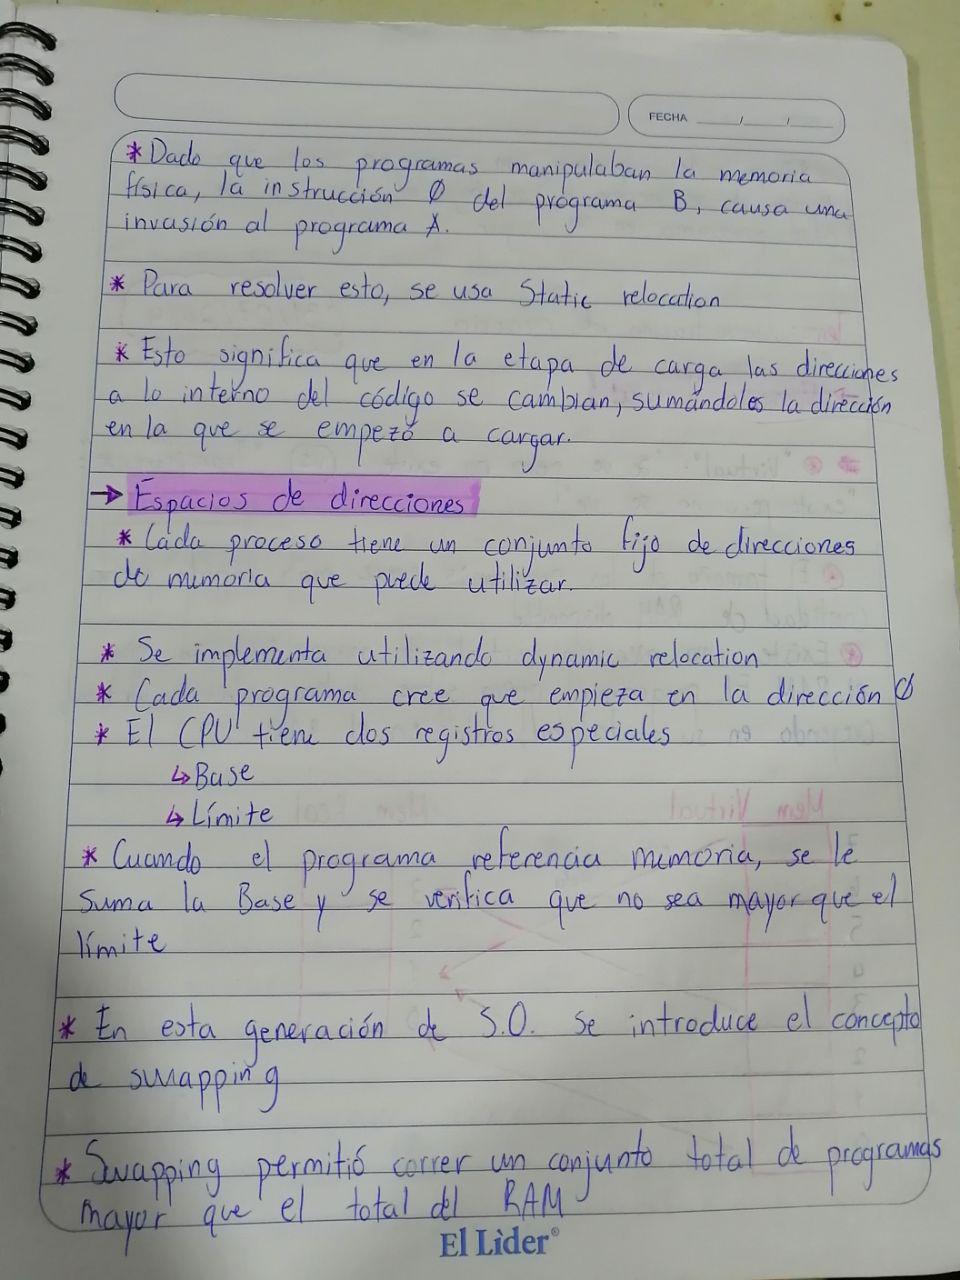 FECHA ___/___/___
* Dado que los programas manipulaban la memoria
física, la instrucción Ø del programa B, causa una
invasión al programa A.
* Para resolver esto, se usa Static relocation
* Esto significa que en la etapa de carga las direcciones
a lo interno del código se cambian, sumándoles la dirección
en la que se empezó a cargar.
→ Espacios de direcciones
* Cada proceso tiene un conjunto fijo de direcciones
de memoria que puede utilizar.
* Se implementa utilizando dynamic relocation
* Cada programa cree que empieza en la dirección Ø
* El CPU tiene dos registros especiales
↳ Base
↳ Límite
* Cuando el programa referencia memoria, se le
suma la Base y se verifica que no sea mayor que el
límite
* En esta generación de S.O. se introduce el concepto
de swapping
* Swapping permitió correr un conjunto total de programas
mayor que el total del RAM
El Lìder®